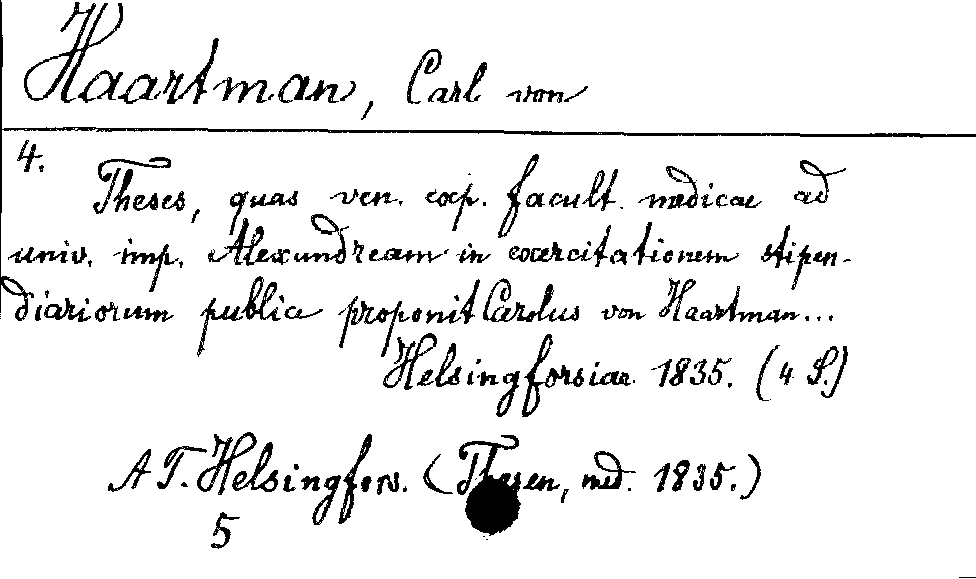 Haartman, Carl von
4.
Theses, quas ven. exp. facult. medicae ad
univ. imp. Alexandream in exercitationem stipen-
diariorum publice proponit Carolus von Haartman...
Helsingforsiae 1835. (4 S.)
A T. Helsingfors. (Thesen, med. 1835.)
5